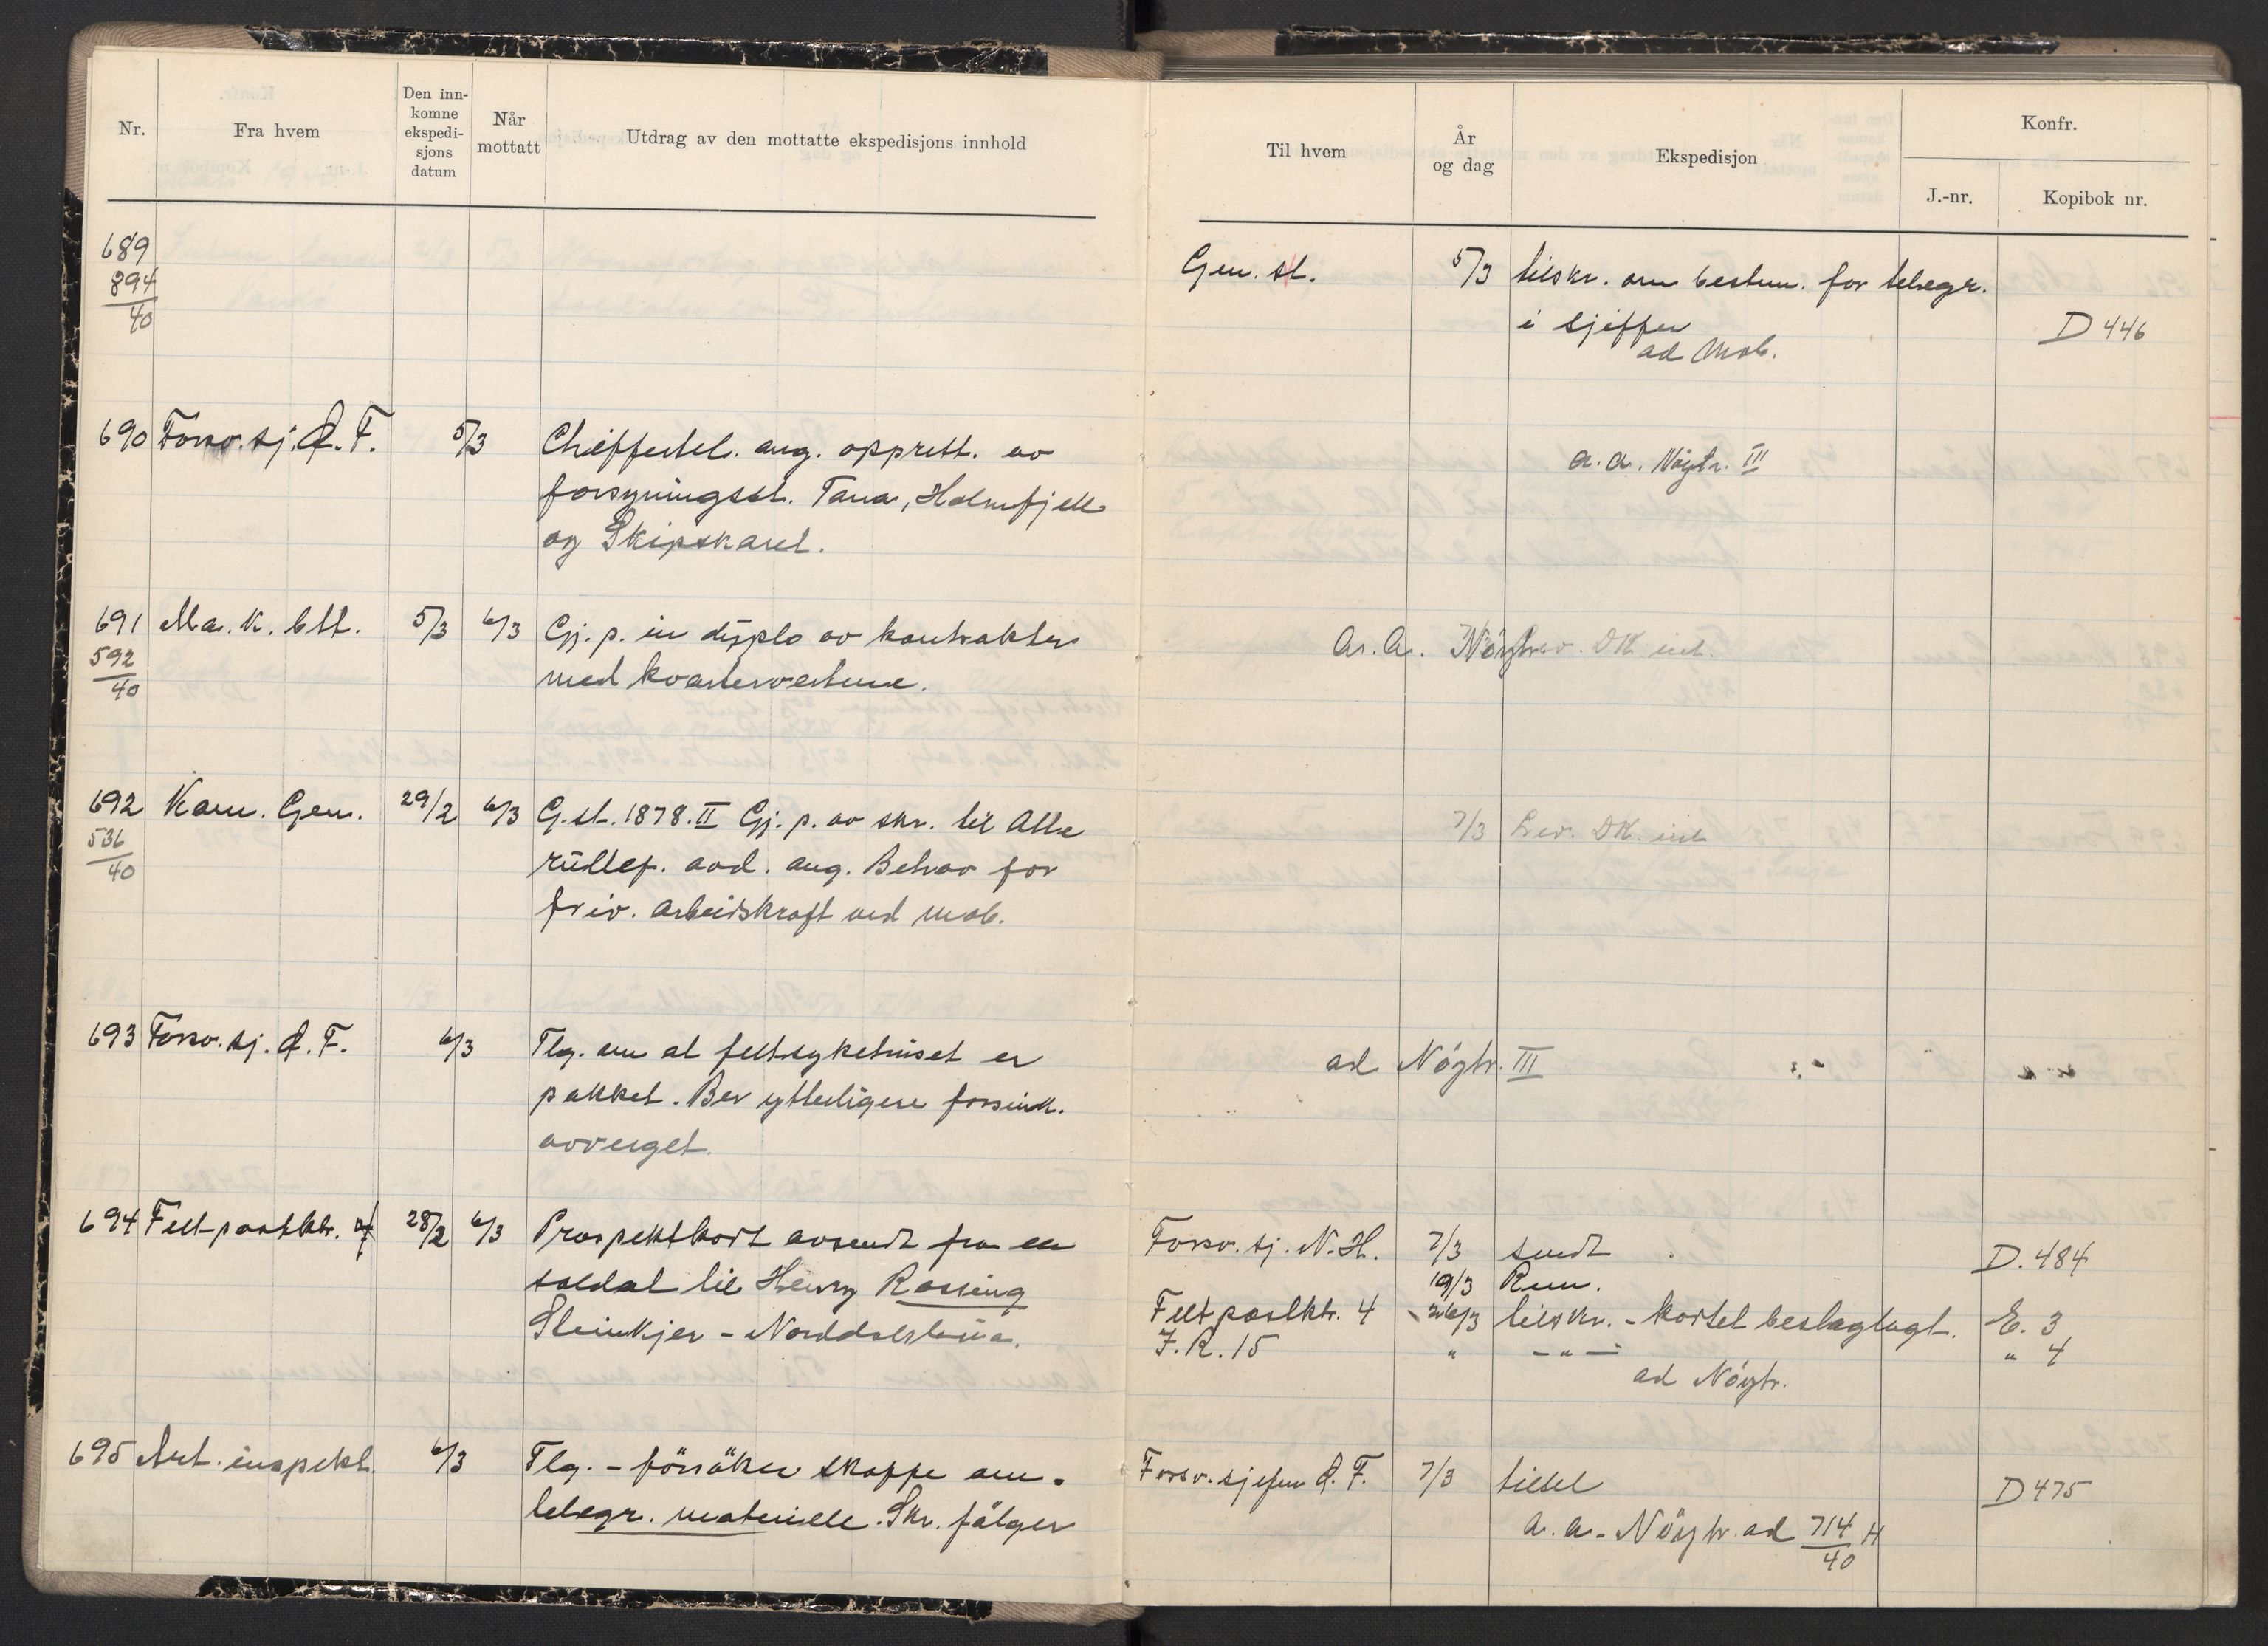 Nr.
Fra hvem
Den inn-
komne
ekspedi-
sjons
datum
Når
mottatt
Utdrag av den mottatte ekspedisjons innhold
689
894
40
690 Forsv.sj. Ø.F. 5/3 Chiffertel. ang. opprett. av
forsyningsst. Tana, Holmfjell
og Skipskard.
691 Ma. K. btl. 5/3 6/3 Gj. p. in duplo av kontrakter
592
40
med kvartervertene.
692 Kom. Gen. 29/2 6/3 G.st. 1878.II Gj. p. av skr. til Alle
536
40
rullef. avd. ang. Behov for
friv. arbeidskraft ved mob.
693 Forsv.sj. Ø.F. 6/3 Tlg. om at feltsykehuset er
pakket. Ber ytterligere forsink.
avverget.
694 Feltpostktr. 4 28/2 6/3 Prospektkort avsendt fra en
soldat til Henry Rossing
Steinkjer - Norddalsbrua.
695 Art. inspekt. 6/3 Tlg. - försöker skaffe om.
telegr. materielle. Skr. fölger
Til hvem
År
og dag
Ekspedisjon
Konfr.
J.-nr.
Kopibok nr.
Gen. st. 5/3 tilskr. om bestem. for telegr.
i sjiffer D 446
ad Mob.
a.a. Nöytr. III
a.a. Nöytr.
7/3 DK.
ad Nöytr. III
Forsv.sj. N.H. 7/3 sendt D. 484
19/3 Rem.
Feltpostktr. 4 26/3 tilskr. - kortet beslaglagt. E. 3
I.R. 15 " - " - " 4
ad Nöytr.
Forsv.sjefen Ø.F. 7/3 tilsel D 475
a.a. Nöytr. ad 714 H
40